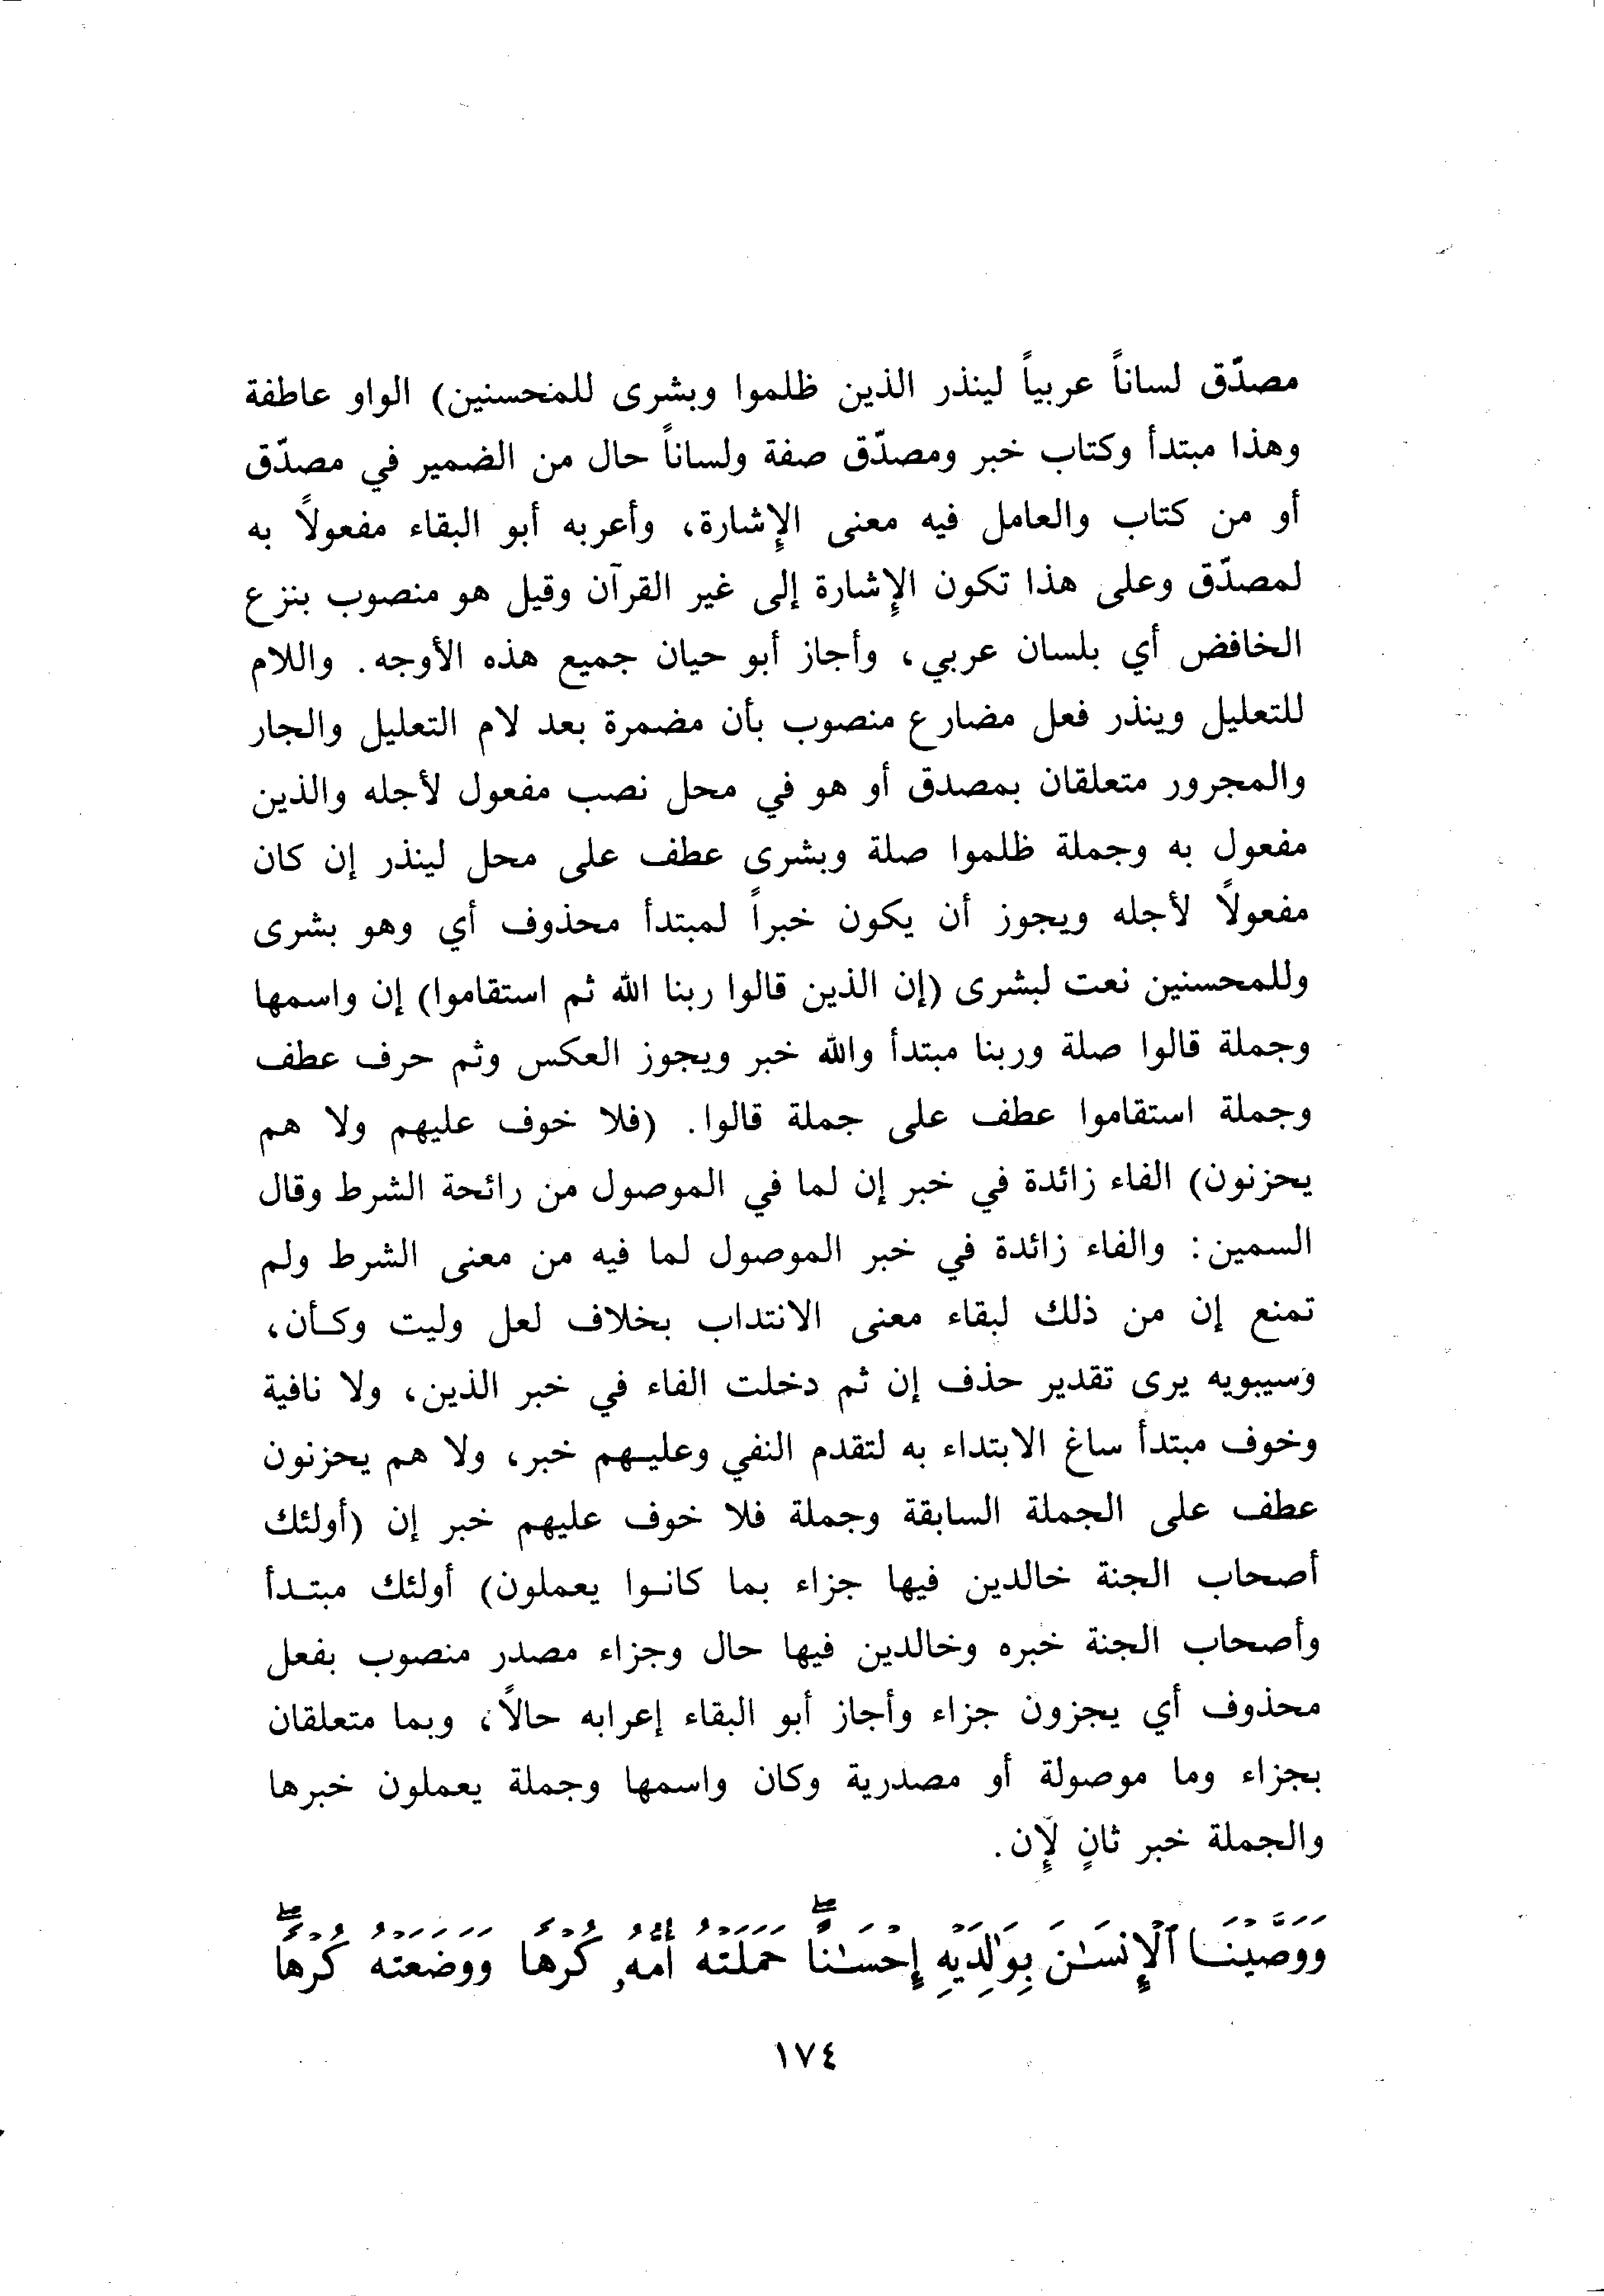 مصدّق لساناً عربياً لينذر الذين ظلموا وبشرى للمحسنين) الواو عاطفة
وهذا مبتدأ وكتاب خبر ومصدّق صفة ولساناً حال من الضمير في مصدّق
أو من كتاب والعامل فيه معنى الإشارة، وأعربه أبو البقاء مفعولاً به
لمصدّق وعلى هذا تكون الإشارة إلى غير القرآن وقيل هو منصوب بنزع
الخافض أي بلسان عربي، وأجاز أبو حيان جميع هذه الأوجه. واللام
للتعليل وينذر فعل مضارع منصوب بأن مضمرة بعد لام التعليل والجار
والمجرور متعلقان بمصدق أو هو في محل نصب مفعول لأجله والذين
مفعول به وجملة ظلموا صلة وبشرى عطف على محل لينذر إن كان
مفعولاً لأجله ويجوز أن يكون خبراً لمبتدأ محذوف أي وهو بشرى
وللمحسنين نعت لبشرى (إن الذين قالوا ربنا الله ثم استقاموا) إن واسمها
وجملة قالوا صلة وربنا مبتدأ والله خبر ويجوز العكس وثم حرف عطف
وجملة استقاموا عطف على جملة قالوا. (فلا خوف عليهم ولا هم
يحزنون) الفاء زائدة في خبر إن لما في الموصول من رائحة الشرط وقال
السمين: والفاء زائدة في خبر الموصول لما فيه من معنى الشرط ولم
تمنع إن من ذلك لبقاء معنى الانتداب بخلاف لعل وليت وكأن،
وسيبويه يرى تقدير حذف إن ثم دخلت الفاء في خبر الذين، ولا نافية
وخوف مبتدأ ساغ الابتداء به لتقدم النفي وعليهم خبر، ولا هم يحزنون
عطف على الجملة السابقة وجملة فلا خوف عليهم خبر إن (أولئك
أصحاب الجنة خالدين فيها جزاء بما كانوا يعملون) أولئك مبتدأ
وأصحاب الجنة خبره وخالدين فيها حال وجزاء مصدر منصوب بفعل
محذوف أي يجزون جزاء وأجاز أبو البقاء إعرابه حالاً، وبما متعلقان
بجزاء وما موصولة أو مصدرية وكان واسمها وجملة يعملون خبرها
والجملة خبر ثانٍ لإن.
وَوَصَّيْنَا ٱلْإِنسَٰنَ بِوَٰلِدَيْهِ إِحْسَٰنًاۖ حَمَلَتْهُ أُمُّهُۥ كُرْهًا وَوَضَعَتْهُ كُرْهًاۖ
١٧٤